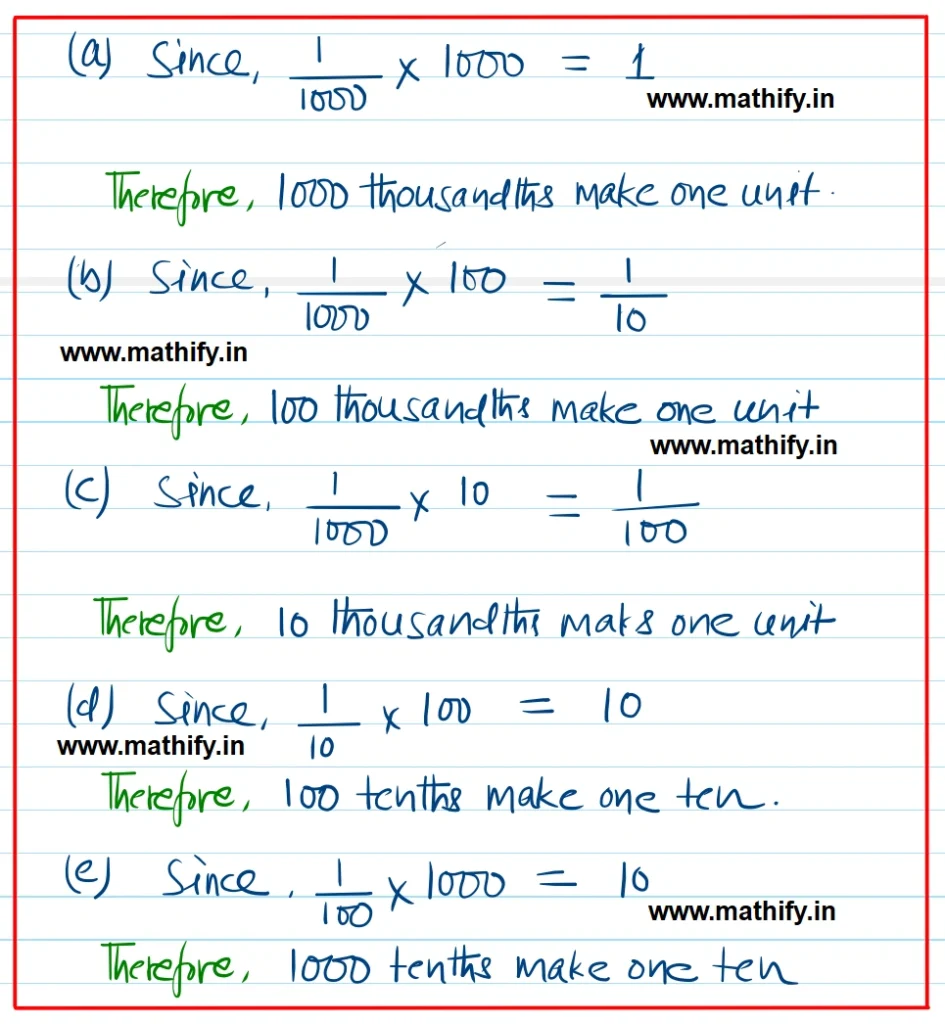 (a) Since, 1/1000 × 1000 = 1
www.mathify.in
Therefore, 1000 thousandths make one unit.
(b) Since, 1/1000 × 100 = 1/10
www.mathify.in
Therefore, 100 thousandths make one unit
www.mathify.in
(c) Since, 1/1000 × 10 = 1/100
Therefore, 10 thousandths maks one unit
(d) Since, 1/10 × 100 = 10
www.mathify.in
Therefore, 100 tenths make one ten.
(e) Since, 1/100 × 1000 = 10
www.mathify.in
Therefore, 1000 tenths make one ten